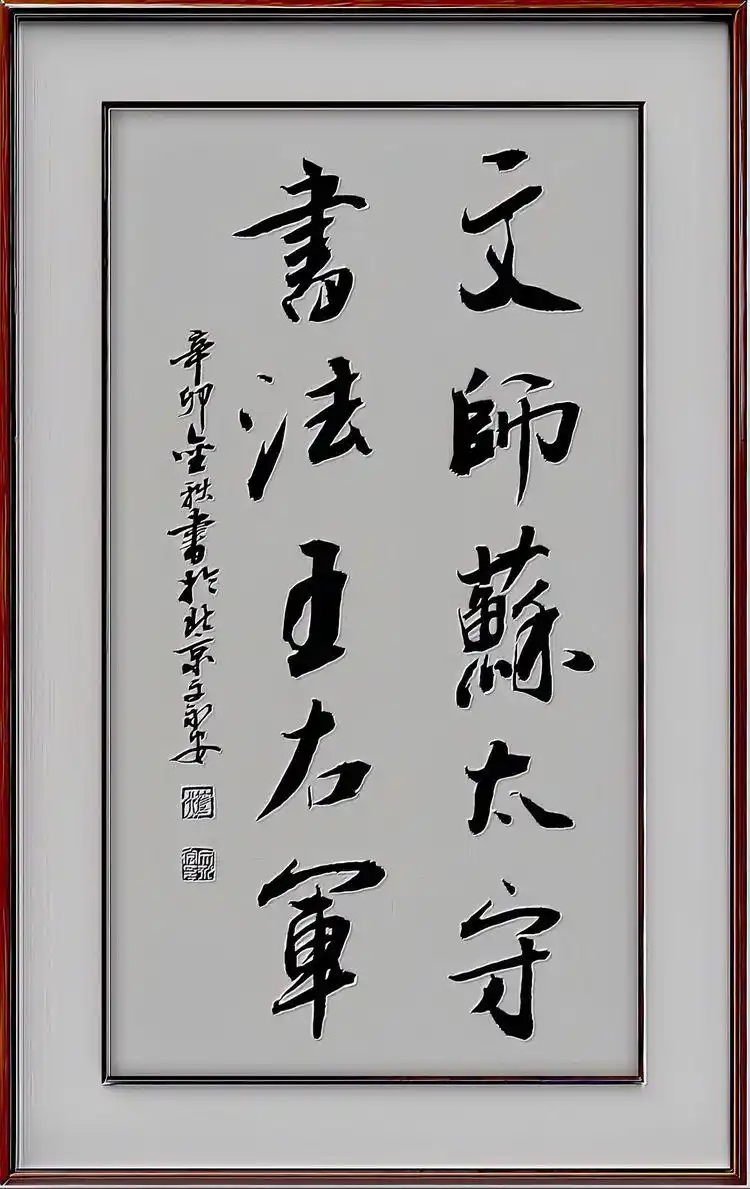 文師蘇太守
書法王右軍
辛卯金秋書於北京文永安